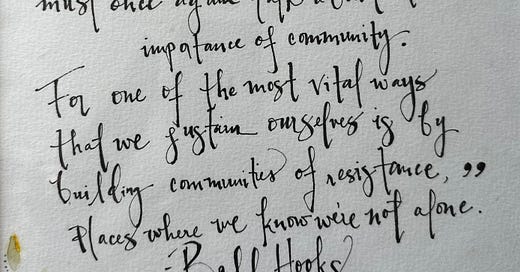 must once again talk about the
importance of community.
For one of the most vital ways
that we sustain ourselves is by
building communities of resistance, ”
places where we know we're not alone.
- Bell Hooks